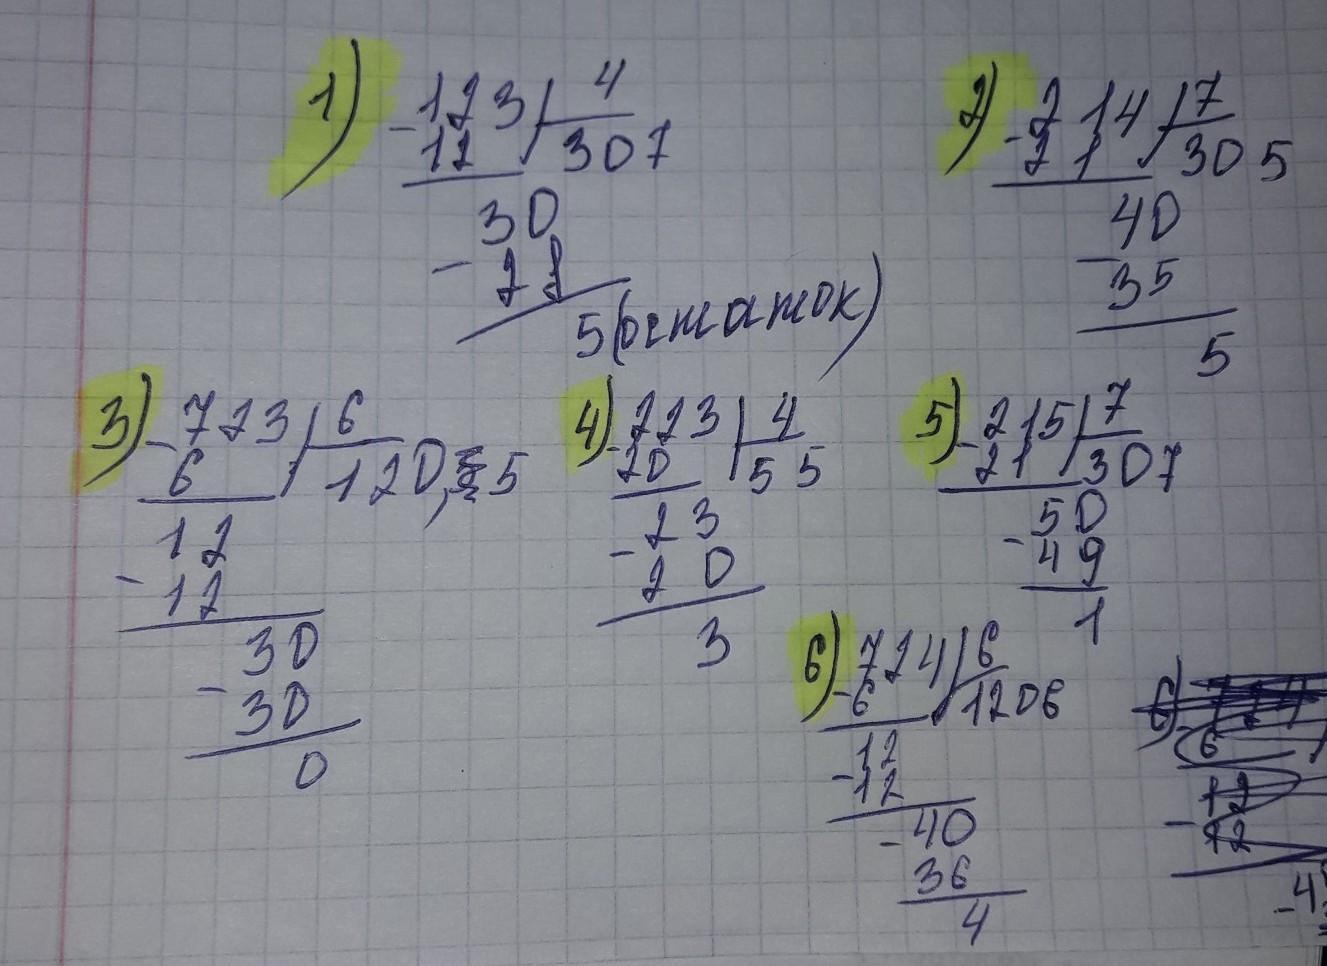 1) -123 | 4
12 307
30
- 22
5 (остаток)
2) -214 | 7
21 305
40
- 35
5
3) -723 | 6
6 120,5
12
- 12
30
- 30
0
4) -223 | 4
20 55
23
- 20
3
5) -215 | 7
21 307
50
- 49
1
6) -724 | 6
6 1206
12
- 12
- 40
36
4
6)
6
12
- 12
-4